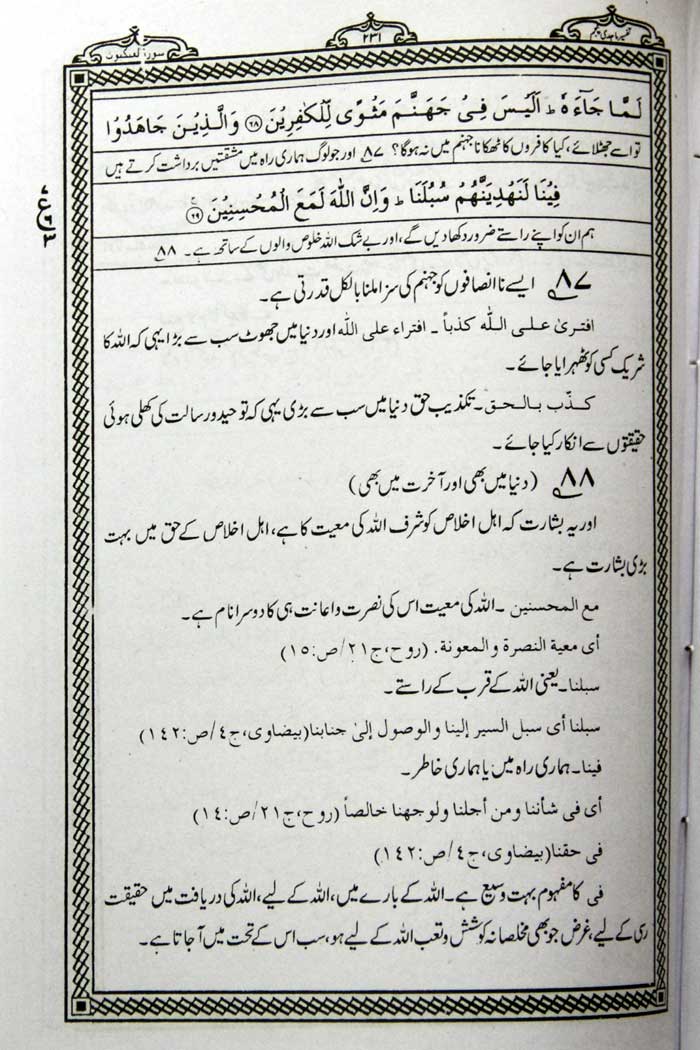 تفسیر ماجدی پنجم
۲۳۱
سورۃ العنکبوت
لَمَّا جَآءَهٗ ؕ اَلَیْسَ فِیْ جَهَنَّمَ مَثْوًی لِّلْكٰفِرِیْنَ ﴿۶۸﴾ وَالَّذِیْنَ جَاهَدُوْا
تو اسے جھٹلائے، کیا کافروں کا ٹھکانا جہنم میں نہ ہوگا؟ ۸۷ اور جو لوگ ہماری راہ میں مشقتیں برداشت کرتے ہیں
فِیْنَا لَنَهْدِیَنَّهُمْ سُبُلَنَا ؕ وَاِنَّ اللّٰهَ لَمَعَ الْمُحْسِنِیْنَ ﴿۶۹﴾
ہم ان کو اپنے راستے ضرور دکھا دیں گے، اور بے شک اللہ خلوص والوں کے ساتھ ہے۔ ۸۸
۸۷ ایسے نا انصافوں کو جہنم کی سزا ملنا بالکل قدرتی ہے۔
افتریٰ علی اللّٰہ کذباً ۔ افتراء علی اللہ اور دنیا میں جھوٹ سب سے بڑا یہی کہ اللہ کا
شریک کسی کو ٹھہرایا جائے۔
کذّب بالحق۔ تکذیب حق دنیا میں سب سے بڑی یہی کہ توحید و رسالت کی کھلی ہوئی
حقیقتوں سے انکار کیا جائے۔
۸۸ (دنیا میں بھی اور آخرت میں بھی)
اور یہ بشارت کہ اہل اخلاص کو شرف اللہ کی معیت کا ہے، اہل اخلاص کے حق میں بہت
بڑی بشارت ہے۔
مع المحسنین ۔ اللہ کی معیت اس کی نصرت و اعانت ہی کا دوسرا نام ہے۔
أی معیة النصرة والمعونة. (روح، ج۲۱/ص:۱۵)
سبلنا۔ یعنی اللہ کے قرب کے راستے۔
سبلنا أی سبل السیر إلینا والوصول إلیٰ جنابنا (بیضاوی، ج۴/ص:۱۴۲)
فینا۔ ہماری راہ میں یا ہماری خاطر۔
أی فی شأننا ومن أجلنا ولوجهنا خالصاً (روح، ج۲۱/ص:۱۴)
فی حقنا (بیضاوی، ج۴/ص:۱۴۲)
فی کا مفہوم بہت وسیع ہے۔ اللہ کے بارے میں، اللہ کے لیے، اللہ کی دریافت میں حقیقت
رسی کے لیے، غرض جو بھی مخلصانہ کوشش و تعب اللہ کے لیے ہو، سب اس کے تحت میں آجاتا ہے۔